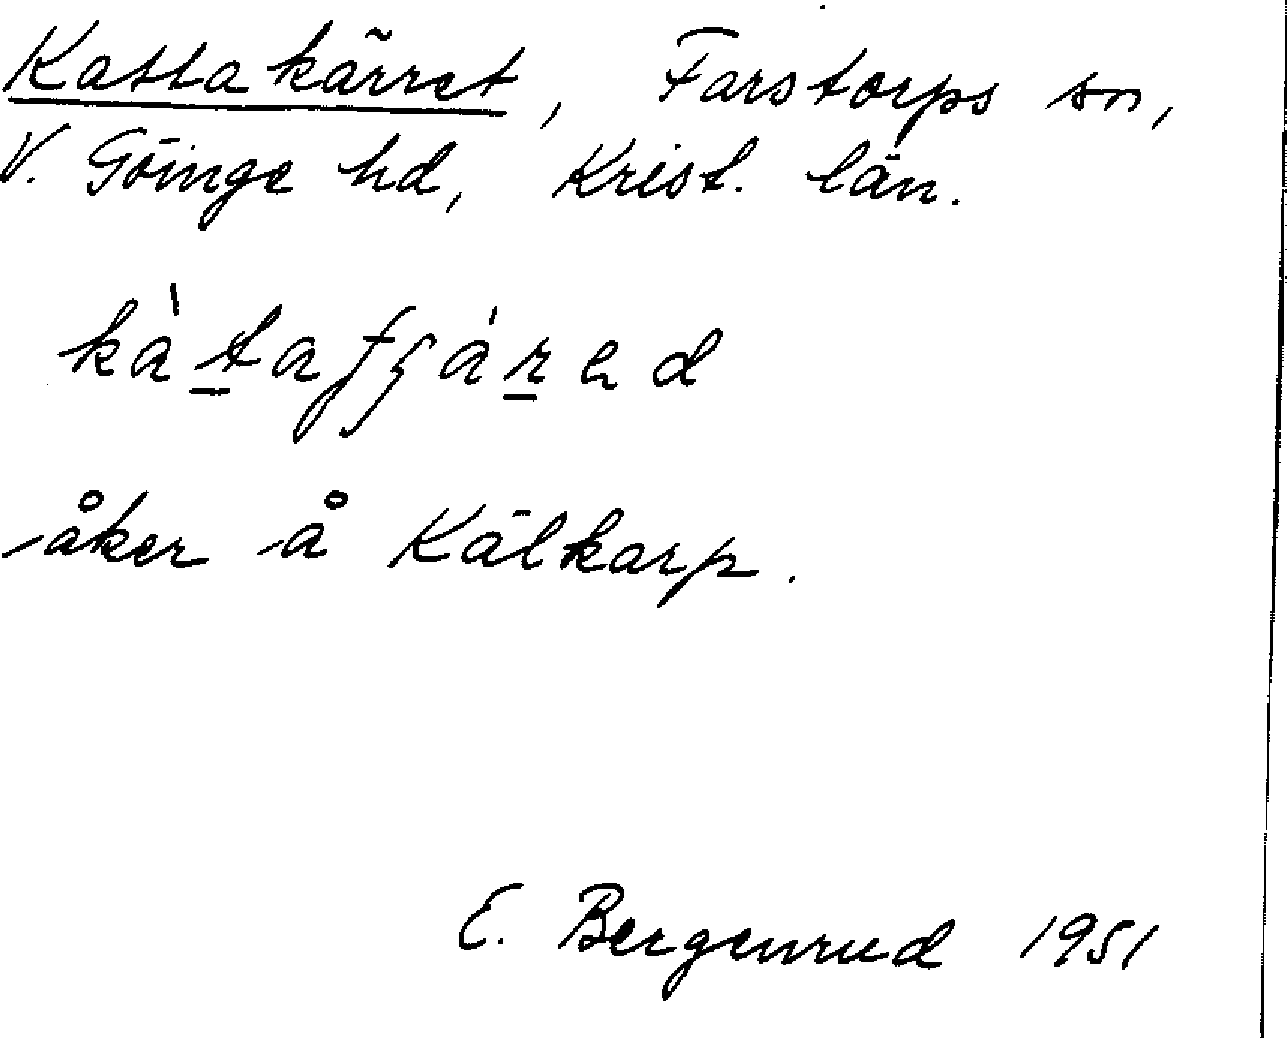 Kattakärret, Farstorps sn,
V. Göinge hd, Krist. län.
kàṯafʒáṟed
åker å Kälkarp.
E. Bergenrud 1951